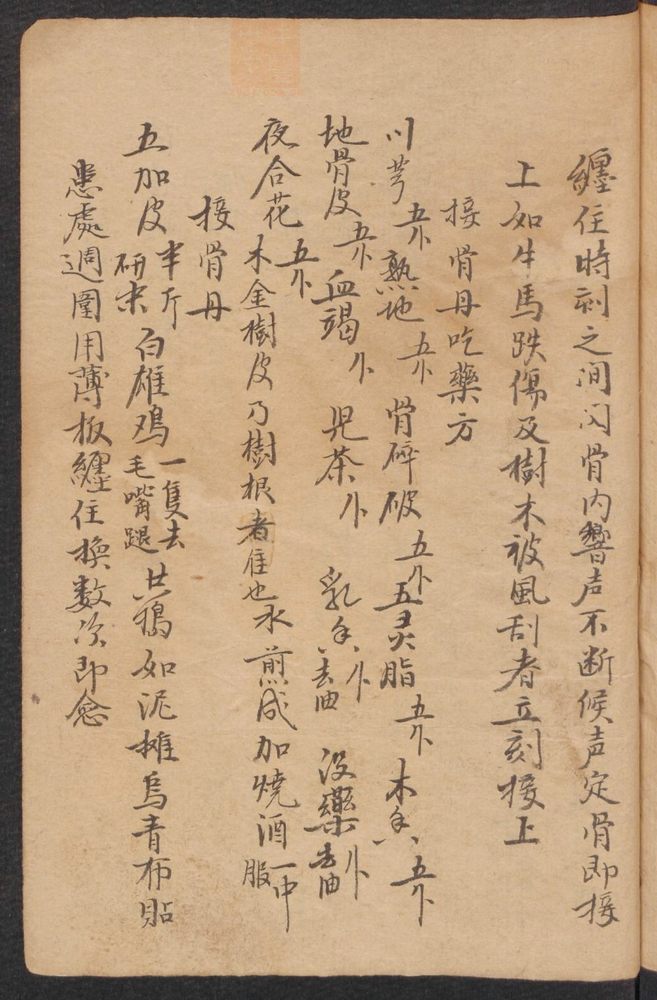 纏住時刻之间闪骨内響声不断候声定骨即接
上如牛馬跌傷及樹木被風刮者立刻接上
接骨丹吃藥方
川芎五卜熟地五卜骨碎破五卜五灵脂五卜木香五卜
地骨皮五卜血竭卜児茶卜乳香卜去油没藥卜去油
夜合花五卜木金樹皮乃樹根者隹也水煎成加燒酒一中服
接骨丹
五加皮半斤研末白雄鸡一隻去毛嘴腿共搗如泥摊烏青布貼
患處週圍用薄板纏住换数次即愈